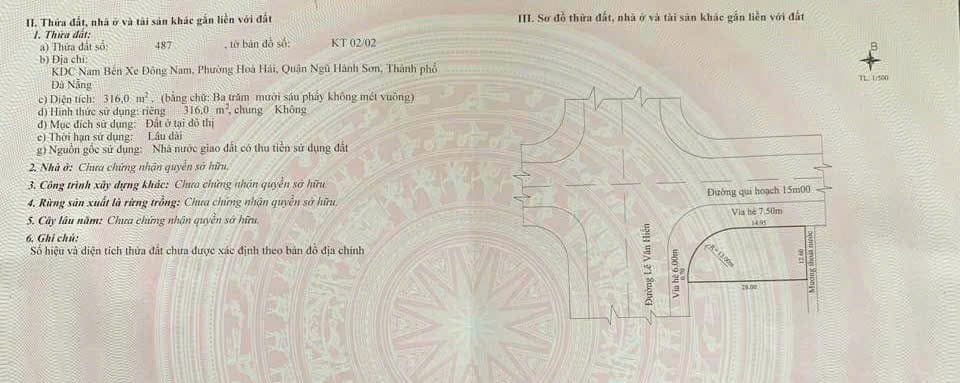 II. Thửa đất, nhà ở và tài sản khác gắn liền với đất
1. Thửa đất:
a) Thửa đất số: 487 , tờ bản đồ số: KT 02/02
b) Địa chỉ:
KDC Nam Bến Xe Đông Nam, Phường Hoà Hải, Quận Ngũ Hành Sơn, Thành phố
Đà Nẵng
c) Diện tích: 316,0 m², (bằng chữ: Ba trăm mười sáu phẩy không mét vuông)
d) Hình thức sử dụng: riêng 316,0 m², chung Không
đ) Mục đích sử dụng: Đất ở tại đô thị
e) Thời hạn sử dụng: Lâu dài
g) Nguồn gốc sử dụng: Nhà nước giao đất có thu tiền sử dụng đất
2. Nhà ở: Chưa chứng nhận quyền sở hữu.
3. Công trình xây dựng khác: Chưa chứng nhận quyền sở hữu.
4. Rừng sản xuất là rừng trồng: Chưa chứng nhận quyền sở hữu.
5. Cây lâu năm: Chưa chứng nhận quyền sở hữu.
6. Ghi chú:
Số hiệu và diện tích thửa đất chưa được xác định theo bản đồ địa chính
III. Sơ đồ thửa đất, nhà ở và tài sản khác gắn liền với đất
B
TL: 1/500
Đường qui hoạch 15m00
Vỉa hè 7.50m
14.95
Đường Lê Văn Hiến
Vỉa hè 6.00m
0.70
R=13.00m
12.60
Mương thoát nước
28.00